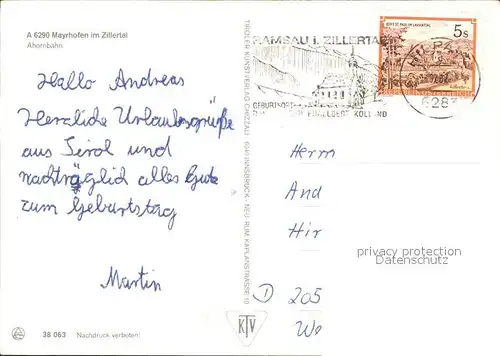 A 6290 Mayrhofen im Zillertal
Ahornbahn.
Hallo Andreas
Herzliche Urlaubsgrüße
aus Tirol und
nachträglich alles Gute
zum Geburtstag
Martin
38 063 Nachdruck verboten!
TIROLER KUNSTVERLAG CHIZZALI · 6040 INNSBRUCK - NEU RUM KAPLANSTRASSE 10
KTV
RAMSAU I. ZILLERTAL
GEBURTSORT
ENGELBERT KOLLAND
STIFT ST. PAUL IM LAVANTTAL
5s
6283
Herrn
And
Hir
D 205
We
privacy protection
on www.ansichtskartenversand.com